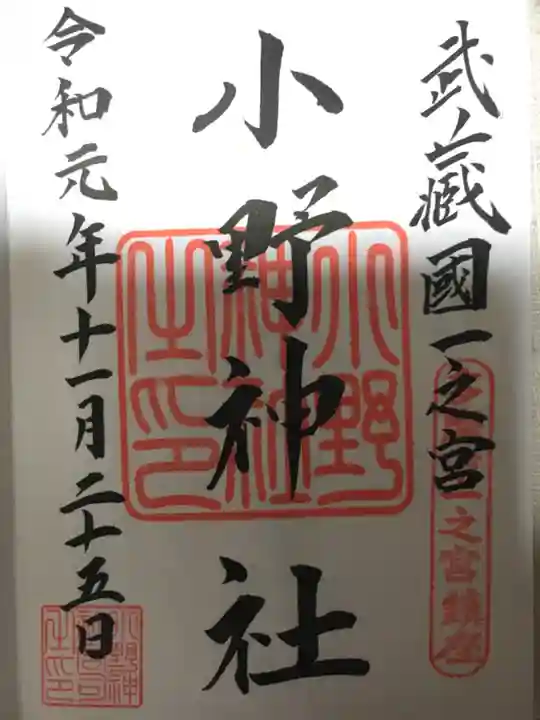 武藏國一之宮
小野神社
令和元年十一月二十五日
小野
神社
之印
一之宮鎮座